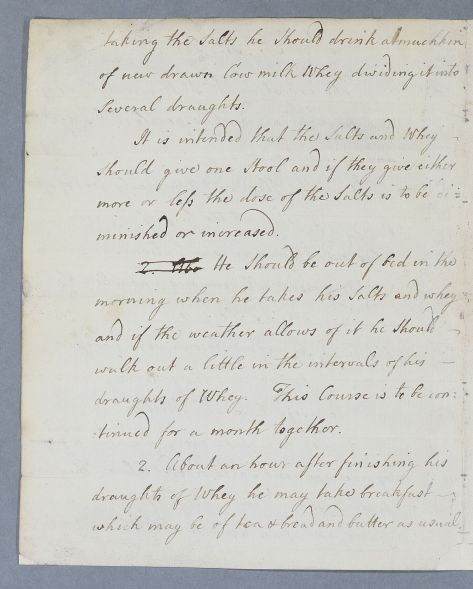 taking the Salts he should drink a muchkin
of new drawn Cow milk Whey dividing it into
Several draughts.
It is intended that the Salts and Whey
should give one Stool and if they give either
more or less the dose of the Salts is to be di=
minished or increased.
2. Abo He should be out of bed in the
morning when he takes his Salts and whey
and if the weather allows of it he should
walk out a little in the intervals of his
draughts of Whey. This Course is to be con:
:tinued for a month together.
2. About an hour after finishing his
draughts of Whey he may take breakfast
which may be of tea & bread and butter as usual,